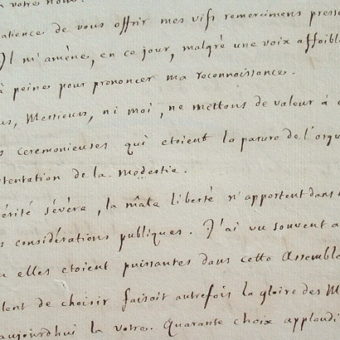 à votre
patience de vous offrir mes vifs remercîmens
Il m'amène, en ce jour, malgré une voix affoibl
à peine pour prononcer ma reconnoissance.
us, Messieurs, ni moi, ne mettons de valeur à
s ceremonieuses qui etoient la parure de l'orgu
tentation de la modestie.
érité sévère, la mâle liberté n'apportent dans
s considérations publiques. J'ai vu souvent a
elles etoient puissantes dans cette Assemble
lent de choisir faisoit autrefois la gloire des M
aujourdhui la votre. Quarante choix applaudi